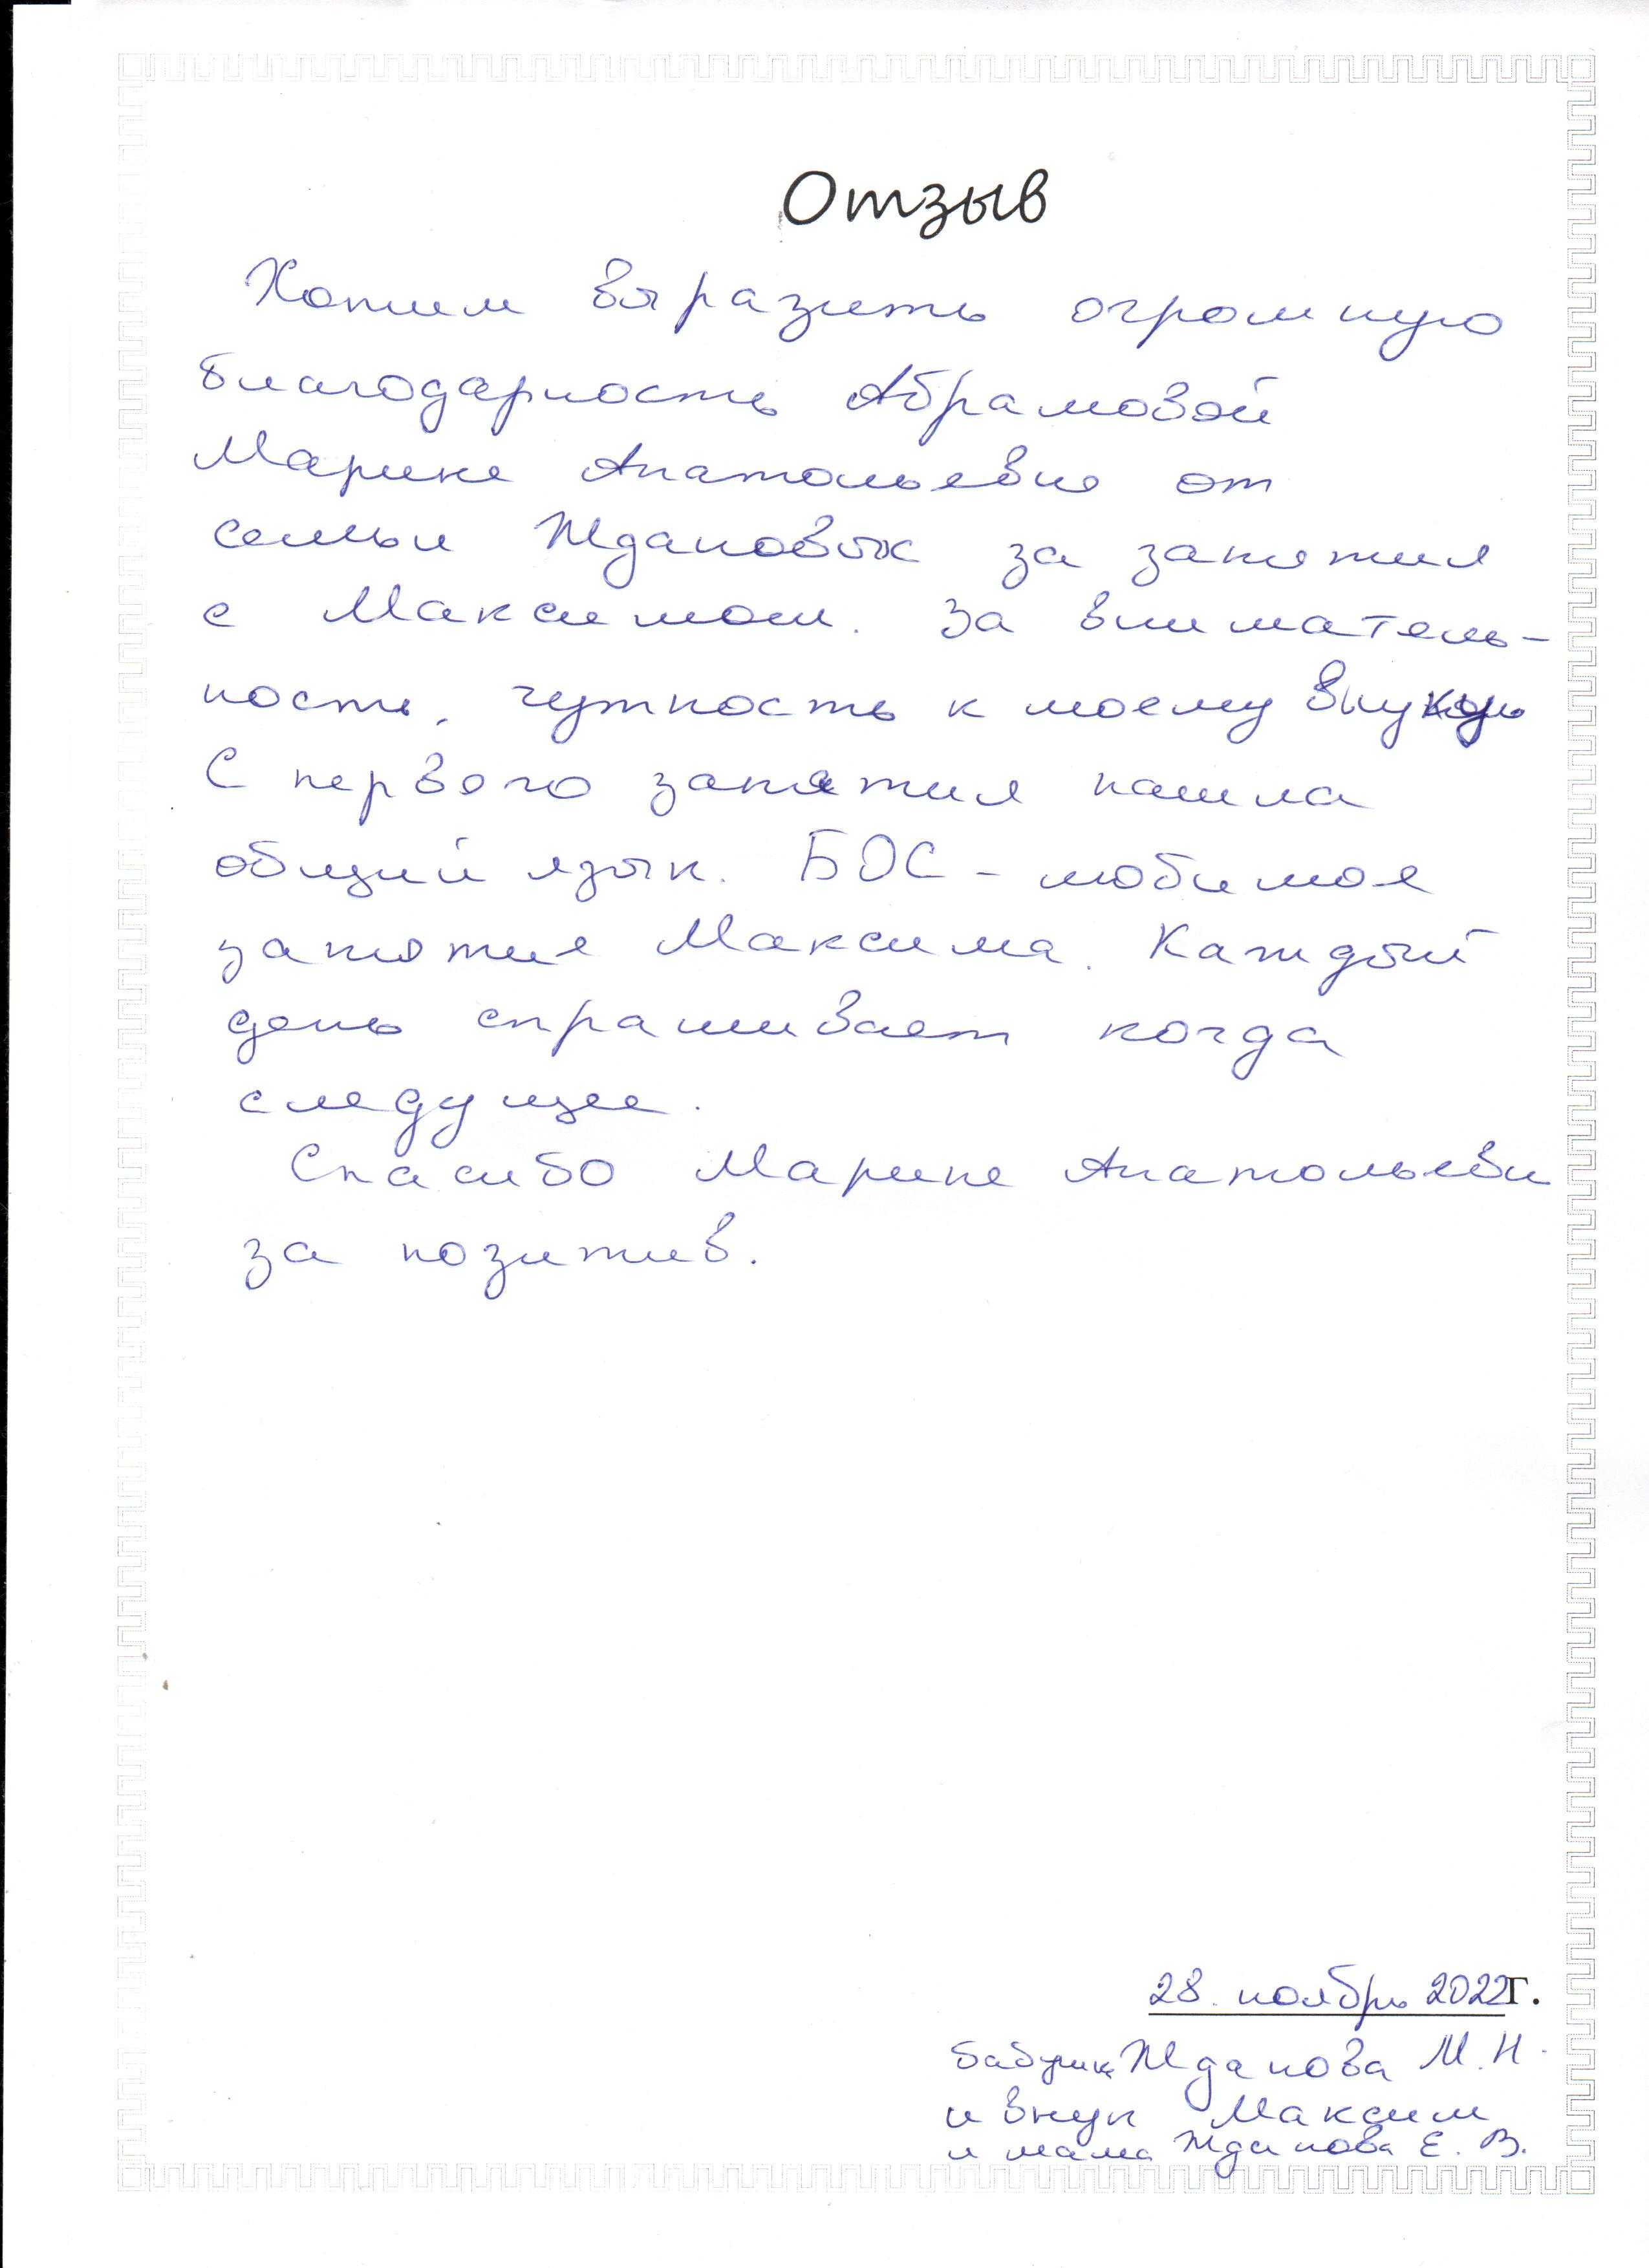 Отзыв
Хотим выразить огромную
благодарность Абрамовой
Марине Анатольевне от
семьи Ждановых за занятия
с Максимом. За вниматель-
ность, чуткость к моему внуку
С первого занятия нашла
общий язык. БОС - любимое
занятие Максима. Каждый
день спрашивает когда
следущее.
Спасибо Марине Анатольевн
за позитив.
28. ноябрь 2022г.
бабушка Жданова М.Н.
и внук Максим
и мама Жданова Е.В.